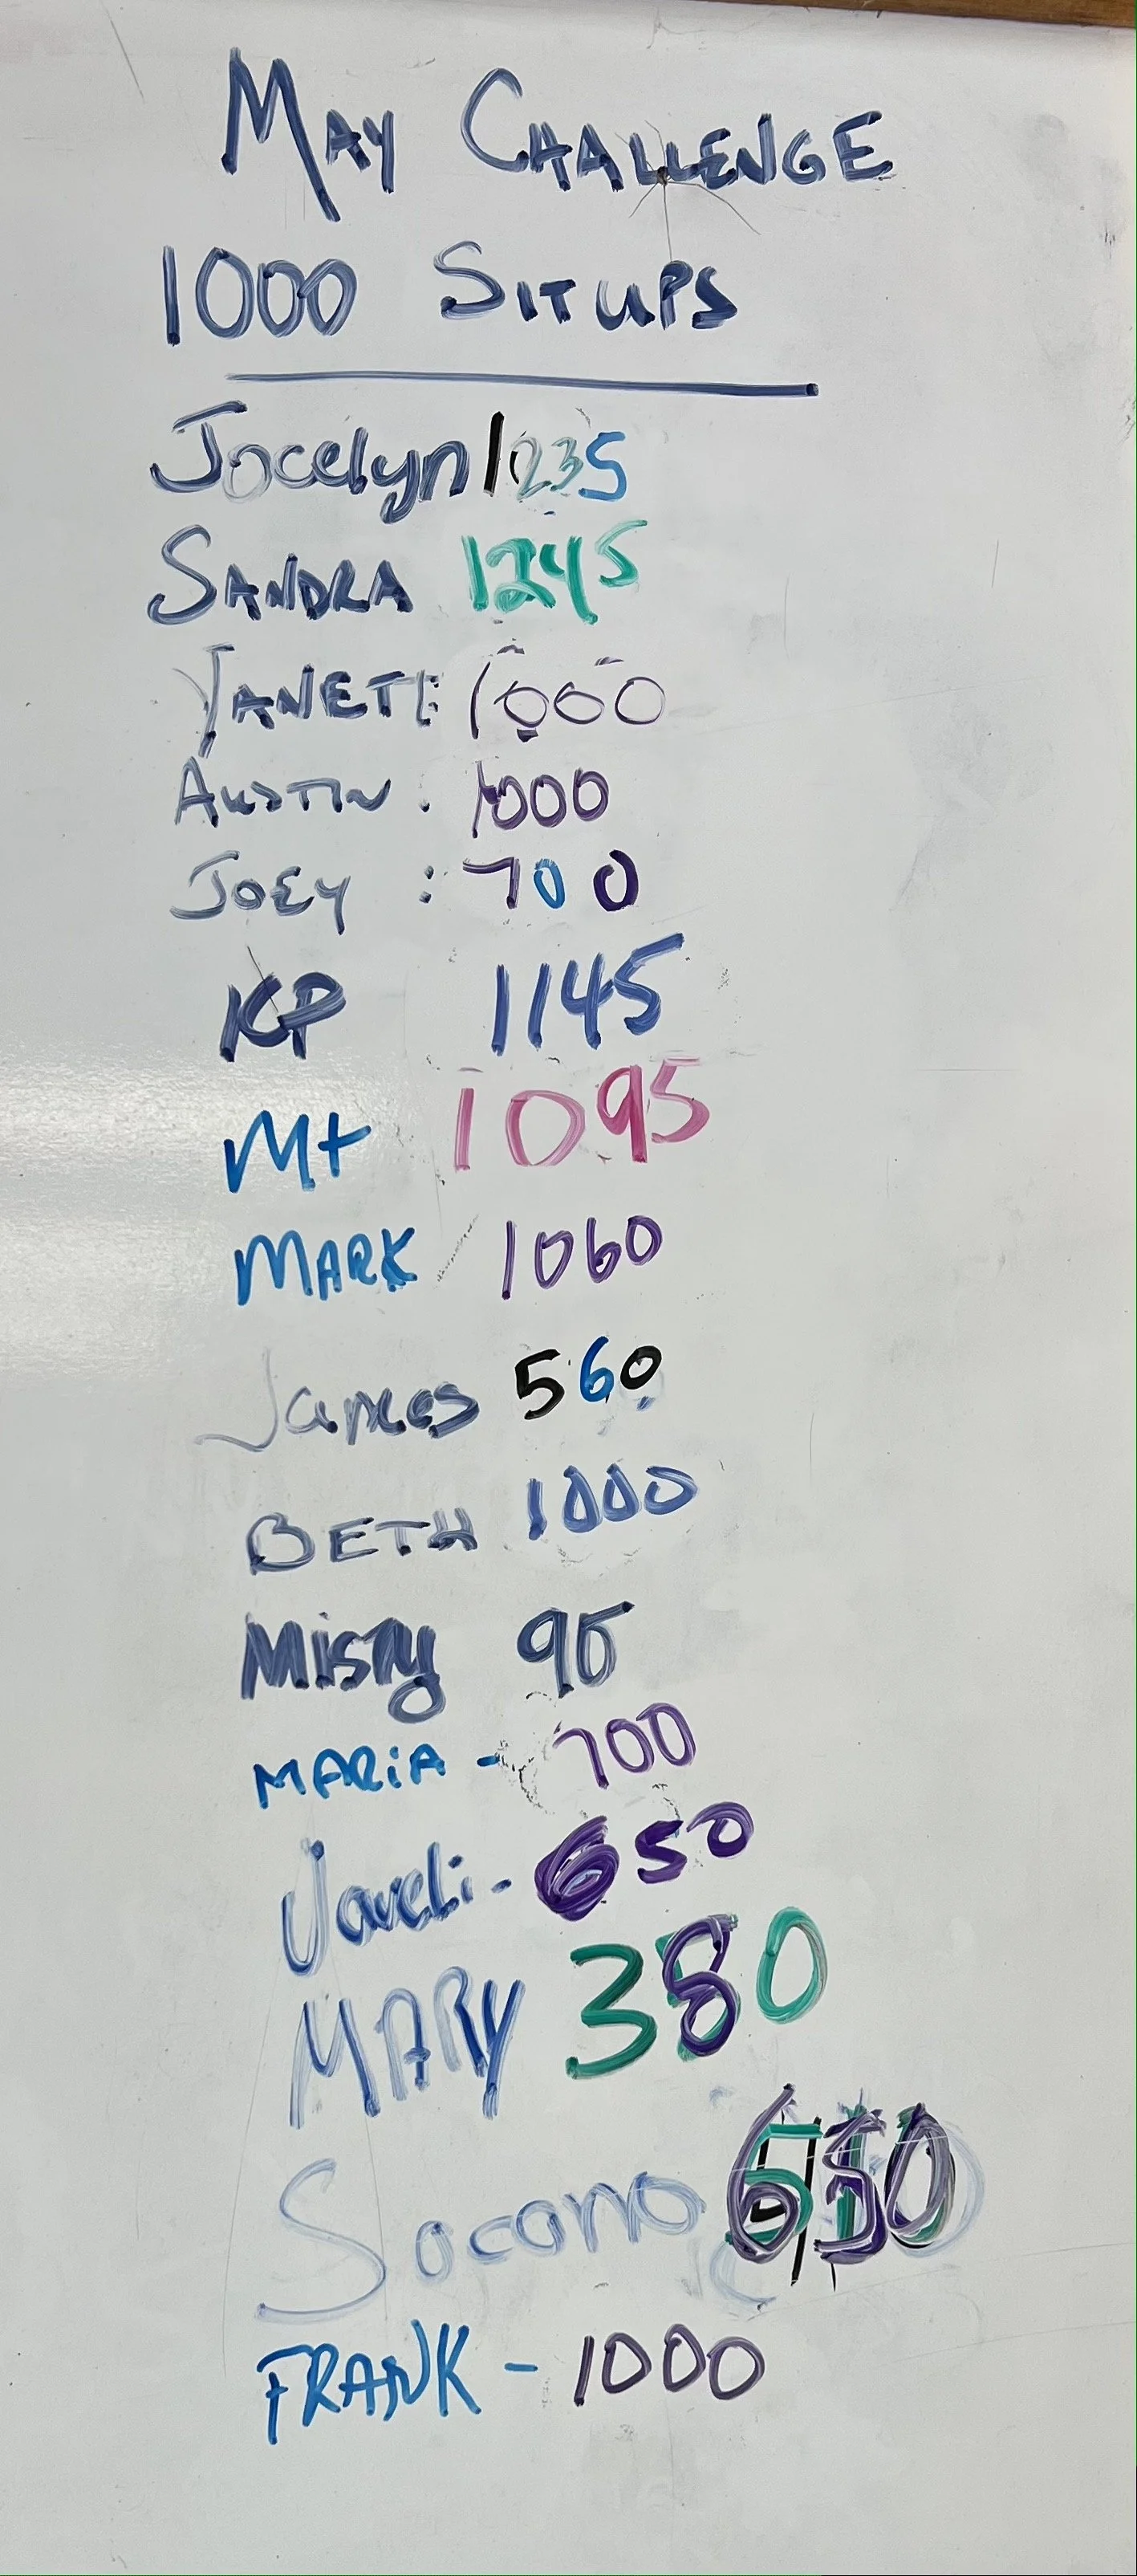 MAY CHALLENGE
1000 SITUPS
Jocelyn 1235
SANDRA 1245
YANETT: 1000
AUSTIN: 1000
JOEY : 700
KP 1145
M+ 1095
MARK 1060
James 560
BETH 1000
Misty 95
MARiA - 700
650
MARY 380
Socorro 650
FRANK - 1000